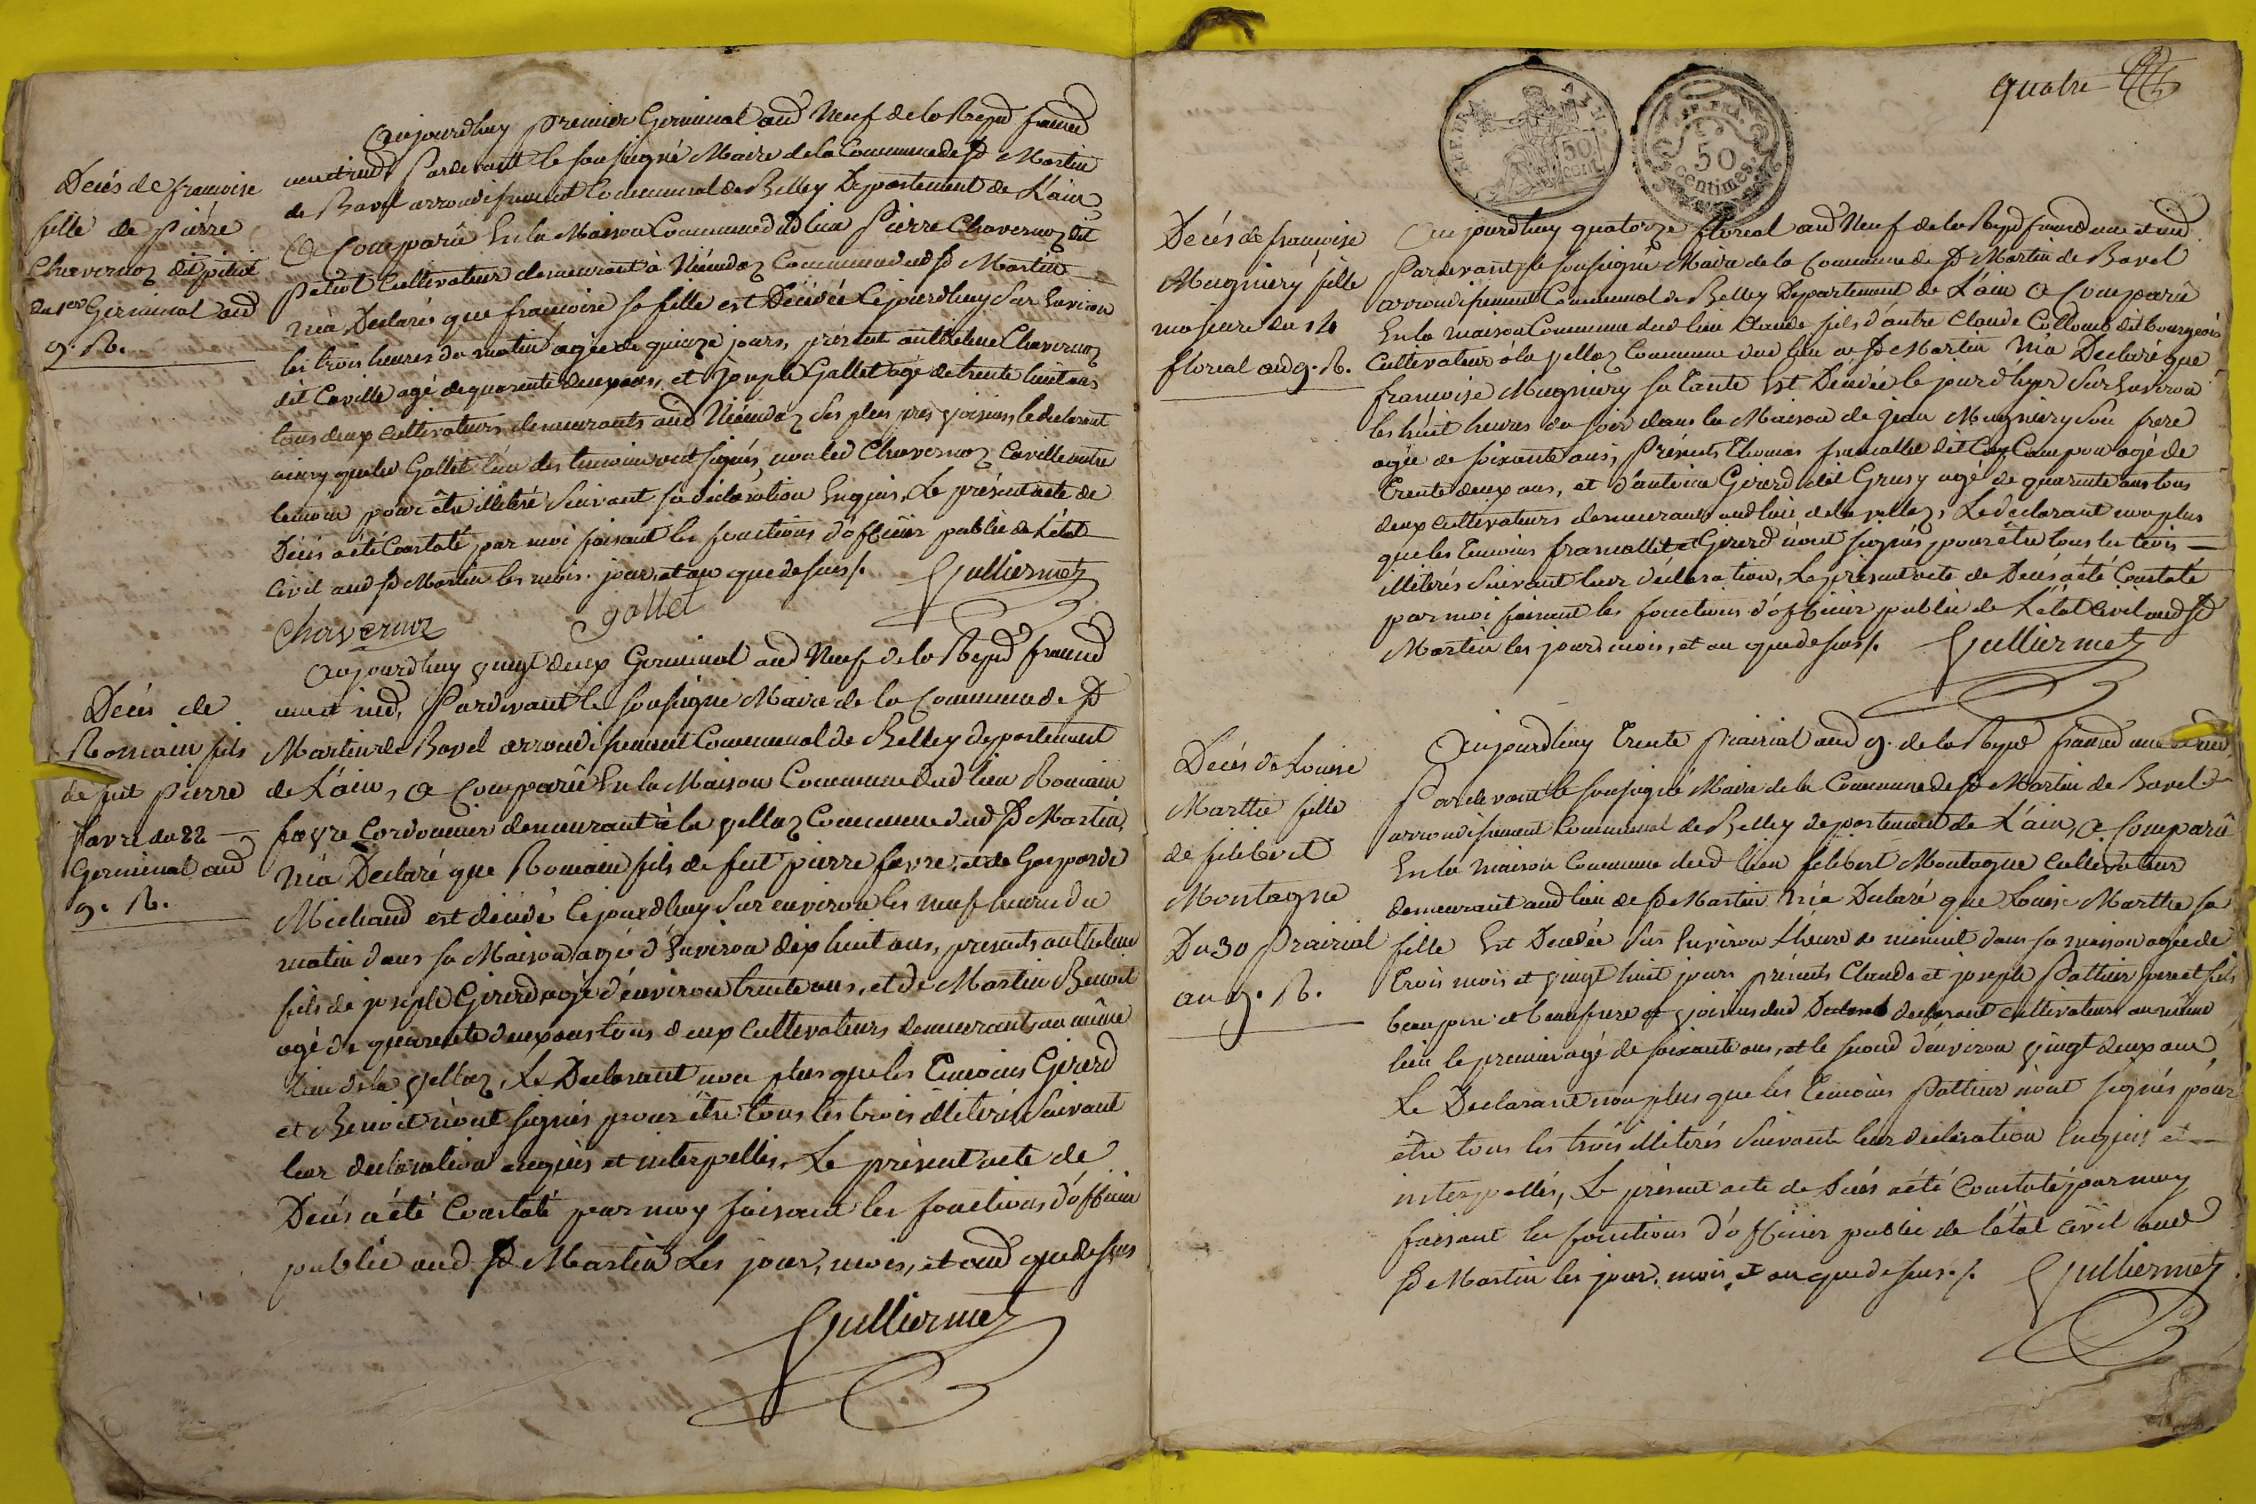 Decés de francoise
fille de pierre
Chavernoz dit petiot
du 1er Germinal and
9. R.
Aujourdhuy premier Germinal and Neuf de la Repud francd
une et indd, Pardevant le soussigné Maire de la Commune de St Martin
de Bavel arrondissement Communal de Belley Departement de L'ain
a Comparû En la Maison Commune dud lieu Pierre Chavernoz dit
petiot Cultivateur demeurant à Commune dud St Martin
m'a Declaré que francoise sa fille est Décédée cejourdhuy sur Environ
les trois heures du matin agée de quinze jours, présent anthelme Chavernoz
dit Caville agé de quarente deux ans, et joseph Gallet agé de trente huit ans
tous deux cultivateurs demeurants aud ses plus près voisins, le declarant
ainsy que led Gallet l'un des temoins ont signés, non led Chavernoz Caville autre
temoin pour être illiteré suivant sa déclaration Enquis, Le présent acte de
Décés a été Constaté par moi faisant les fonctions d'officier public de L'état
Civil aud St Martin les mois, jour, et an que dessus /.
Gulliermet
Chavernoz gallet
Decés de
Romain fils
de feut pierre
favre du 22
Germinal and
9. R.
Aujourdhuy vingt deux Germinal and Neuf de la Repud francd
une et indd, Pardevant le soussigné Maire de la Commune de St
Martin de Bavel arrondissement Communal de Belley departement
de L'ain, a Comparû En la Maison Commune dud lieu Romain
favre Cordonnier demeurant à la vellaz Commune dud St Martin,
m'a Declaré que Romain fils de feut pierre favre, et de Gasparde
Michaud est décédé cejourdhuy sur environ les neuf heures du
matin dans sa Maison agé d'Environ dix huit ans, presents anthelme
fils de joseph Girerd agé d'environ trente ans, et de Martin Benoit
agé de quarente deux ans tous deux Cultivateurs demeurants au même
lieu de la vellaz, Le Declarant non plus que les Temoins Girerd
et Benoit n'ont signés pour être tous les trois illiterés Suivant
leur declaration enquis et interpellés, Le présent acte de
Décés a été Constaté par moy faisant les fonctions d'officier
public aud St Martin Les jour, mois, et and que dessus
Gulliermet
quatre
REP. FRA.
50
cent
REP. FRA.
50
centimes.
Decés de françoise
Mugniery fille
majeure du 14
floreal and 9. R.
Aujourdhuy quatorze floreal and Neuf de la Repud francd une et indd
Pardevant, le soussigné Maire de la Commune de St Martin de Bavel
arrondissement Communal de Belley Departement de L'ain a Comparû
En la maison Commune dud lieu Claude fils d'autre Claude Collomb dit bourgeois
Cultivateur à la vellaz Commune dud lieu de St Martin M'a Declaré que
francoise Mugniery sa Tante Est Décédée le jour d'hyer sur Environ
les huit heures du soir dans la Maison de jean Mugniery son frere
agée de soixante ans, Présents Thomas francallet dit agé de
Trente deux ans, et d'antoine Girerd dit Grusy agé de quarente ans tous
deux Cultivateurs demeurants aud lieu de la vellaz, Le declarant non plus
que les Temoins francallet et Girerd n'ont signés, pour être tous les trois
illiterés Suivant leur déclaration, Le présent acte de Decés a été Constaté
par moi faisant les fonctions d'officier public de L'état Civil aud St
Martin les jour, mois, et an que dessus /.
Gulliermet
Decés de Louise
Marthe fille
de filibert
Montagne
Du 30 Prairial
an 9. R.
Aujourdhuy Trente Prairial and 9. de la Repud francd une et indd
Pardevant le soussigné Maire de la Commune de St Martin de Bavel
arrondissement Communal de Belley departement de L'ain, a Comparû
En la maison Commune dud lieu filibert Montagne Cultivateur
demeurant aud lieu de St Martin M'a Declaré que Louise Marthe sa
fille Est Decedée Sur Environ L'heure de minuit dans sa maison agée de
Trois mois et vingt huit jours présents Claude et joseph Pattier pere et fils
beau pere et beau frere et voisins dud declarant cultivateurs au même
lieu le premier agé de soixante ans, et le second d'environ vingt deux ans
Le Declarant non plus que les Temoins Pattier n'ont signés pour
être tous les trois illiterés Suivant leur déclaration Enquis et
interpellés, Le présent acte de Décés a été Constaté par moy
faisant les fonctions d'officier public de l'état Civil aud
St Martin les jour, mois, et an que dessus. /.
Gulliermet